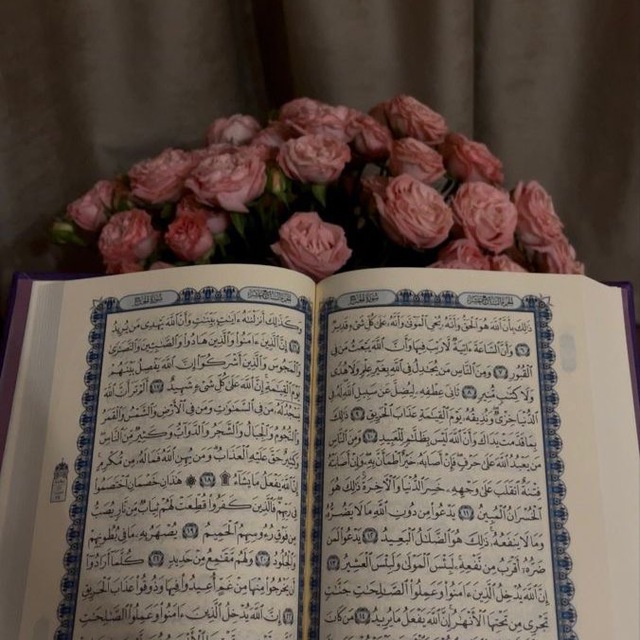 الجزء السابع عشر
سورة الحج
ذَٰلِكَ بِأَنَّ ٱللَّهَ هُوَ ٱلْحَقُّ وَأَنَّهُۥ يُحْىِ ٱلْمَوْتَىٰ وَأَنَّهُۥ عَلَىٰ كُلِّ شَىْءٍ قَدِيرٌ
٦ وَأَنَّ ٱلسَّاعَةَ ءَاتِيَةٌ لَّا رَيْبَ فِيهَا وَأَنَّ ٱللَّهَ يَبْعَثُ مَن فِى
ٱلْقُبُورِ ٧ وَمِنَ ٱلنَّاسِ مَن يُجَٰدِلُ فِى ٱللَّهِ بِغَيْرِ عِلْمٍ وَلَا هُدًى
وَلَا كِتَٰبٍ مُّنِيرٍ ٨ ثَانِىَ عِطْفِهِۦ لِيُضِلَّ عَن سَبِيلِ ٱللَّهِ لَهُۥ فِى
ٱلدُّنْيَا خِزْىٌ وَنُذِيقُهُۥ يَوْمَ ٱلْقِيَٰمَةِ عَذَابَ ٱلْحَرِيقِ ٩ ذَٰلِكَ
بِمَا قَدَّمَتْ يَدَاكَ وَأَنَّ ٱللَّهَ لَيْسَ بِظَلَّٰمٍ لِّلْعَبِيدِ ١٠ وَمِنَ ٱلنَّاسِ
مَن يَعْبُدُ ٱللَّهَ عَلَىٰ حَرْفٍ فَإِنْ أَصَابَهُۥ خَيْرٌ ٱطْمَأَنَّ بِهِۦ وَإِنْ أَصَابَتْهُ
فِتْنَةٌ ٱنقَلَبَ عَلَىٰ وَجْهِهِۦ خَسِرَ ٱلدُّنْيَا وَٱلْءَاخِرَةَ ذَٰلِكَ هُوَ
ٱلْخُسْرَانُ ٱلْمُبِينُ ١١ يَدْعُوا۟ مِن دُونِ ٱللَّهِ مَا لَا يَضُرُّهُۥ
وَمَا لَا يَنفَعُهُۥ ذَٰلِكَ هُوَ ٱلضَّلَٰلُ ٱلْبَعِيدُ ١٢ يَدْعُوا۟ لَمَن
ضَرُّهُۥٓ أَقْرَبُ مِن نَّفْعِهِۦ لَبِئْسَ ٱلْمَوْلَىٰ وَلَبِئْسَ ٱلْعَشِيرُ ١٣
إِنَّ ٱللَّهَ يُدْخِلُ ٱلَّذِينَ ءَامَنُوا۟ وَعَمِلُوا۟ ٱلصَّٰلِحَٰتِ جَنَّٰتٍ
تَجْرِى مِن تَحْتِهَا ٱلْأَنْهَٰرُ إِنَّ ٱللَّهَ يَفْعَلُ مَا يُرِيدُ ١٤ مَن كَانَ
الجزء السابع عشر
سورة الحج
وَكَذَٰلِكَ أَنزَلْنَٰهُ ءَايَٰتٍۭ بَيِّنَٰتٍ وَأَنَّ ٱللَّهَ يَهْدِى مَن يُرِيدُ
١٦ إِنَّ ٱلَّذِينَ ءَامَنُوا۟ وَٱلَّذِينَ هَادُوا۟ وَٱلصَّٰبِـِٔينَ وَٱلنَّصَٰرَىٰ
وَٱلْمَجُوسَ وَٱلَّذِينَ أَشْرَكُوٓا۟ إِنَّ ٱللَّهَ يَفْصِلُ بَيْنَهُمْ
يَوْمَ ٱلْقِيَٰمَةِ إِنَّ ٱللَّهَ عَلَىٰ كُلِّ شَىْءٍ شَهِيدٌ ١٧ أَلَمْ تَرَ أَنَّ ٱللَّهَ
يَسْجُدُ لَهُۥ مَن فِى ٱلسَّمَٰوَٰتِ وَمَن فِى ٱلْأَرْضِ وَٱلشَّمْسُ وَٱلْقَمَرُ
وَٱلنُّجُومُ وَٱلْجِبَالُ وَٱلشَّجَرُ وَٱلدَّوَآبُّ وَكَثِيرٌ مِّنَ ٱلنَّاسِ
وَكَثِيرٌ حَقَّ عَلَيْهِ ٱلْعَذَابُ وَمَن يُهِنِ ٱللَّهُ فَمَا لَهُۥ مِن مُّكْرِمٍ
إِنَّ ٱللَّهَ يَفْعَلُ مَا يَشَآءُ ۩ ١٨ ۞ هَٰذَانِ خَصْمَانِ ٱخْتَصَمُوا۟
فِى رَبِّهِمْ فَٱلَّذِينَ كَفَرُوا۟ قُطِّعَتْ لَهُمْ ثِيَابٌ مِّن نَّارٍ يُصَبُّ
مِن فَوْقِ رُءُوسِهِمُ ٱلْحَمِيمُ ١٩ يُصْهَرُ بِهِۦ مَا فِى بُطُونِهِمْ
وَٱلْجُلُودُ ٢٠ وَلَهُم مَّقَٰمِعُ مِنْ حَدِيدٍ ٢١ كُلَّمَآ أَرَادُوٓا۟
أَن يَخْرُجُوا۟ مِنْهَا مِنْ غَمٍّ أُعِيدُوا۟ فِيهَا وَذُوقُوا۟ عَذَابَ ٱلْحَرِيقِ
٢٢ إِنَّ ٱللَّهَ يُدْخِلُ ٱلَّذِينَ ءَامَنُوا۟ وَعَمِلُوا۟ ٱلصَّٰلِحَٰتِ